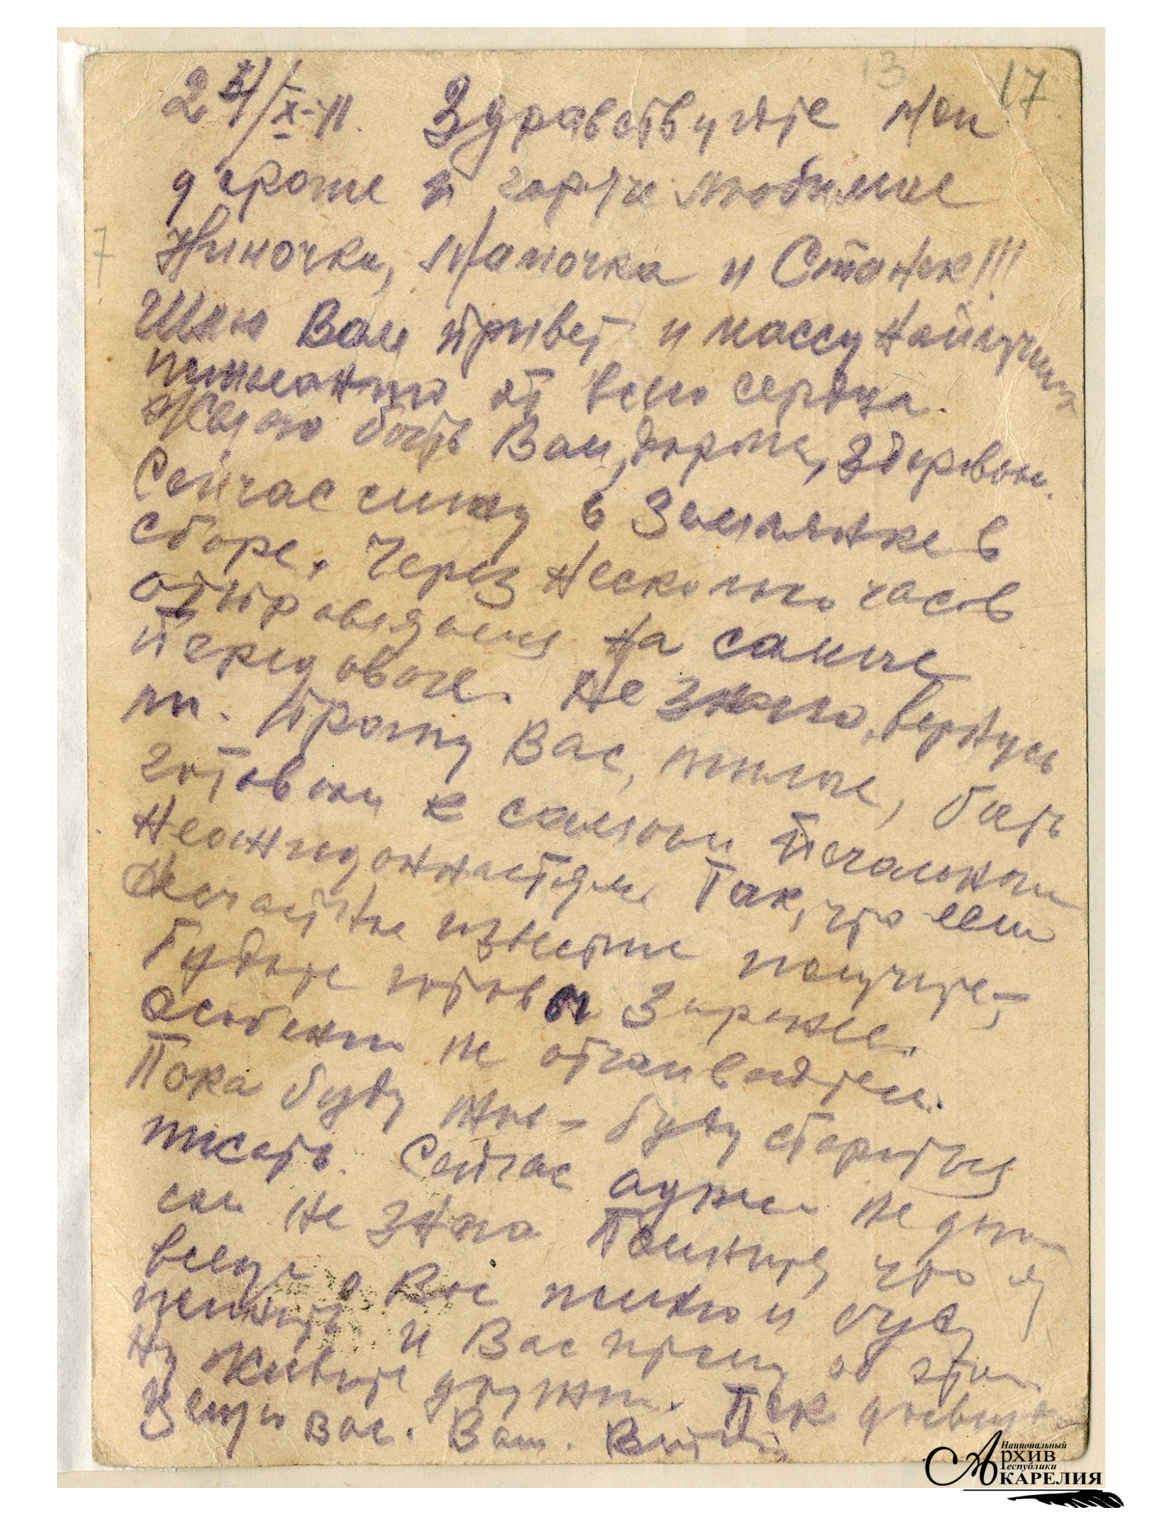 13 17
24/X-41. Здравствуйте мои
дорогие и горячо любимые
Ниночка, Мамочка и Станек!!!
Шлю Вам привет и массу наилучших
пожеланий от всего сердца.
Желаю быть Вам, дорогие, здоровыми.
Сейчас сижу в землянке в
сборе. Через несколько часов
отправляемся на самые
передовые. Не знаю, вернусь
ли. Прошу Вас, милые, быть
готовыми к самым печальным
неожиданностям. Так, что если
несчастные известие получите,
будьте готовы заранее.
Особенно не отчаивайтесь.
Пока буду жив – буду стараться
писать. Сейчас
сам не знаю Помните, что я
всегда о Вас помню и буду
помнить. И Вас прошу об этом
Ну живите дружно. Пок
Целую вас. Ваш.
7
Национальный
Архив
Республики
Карелия